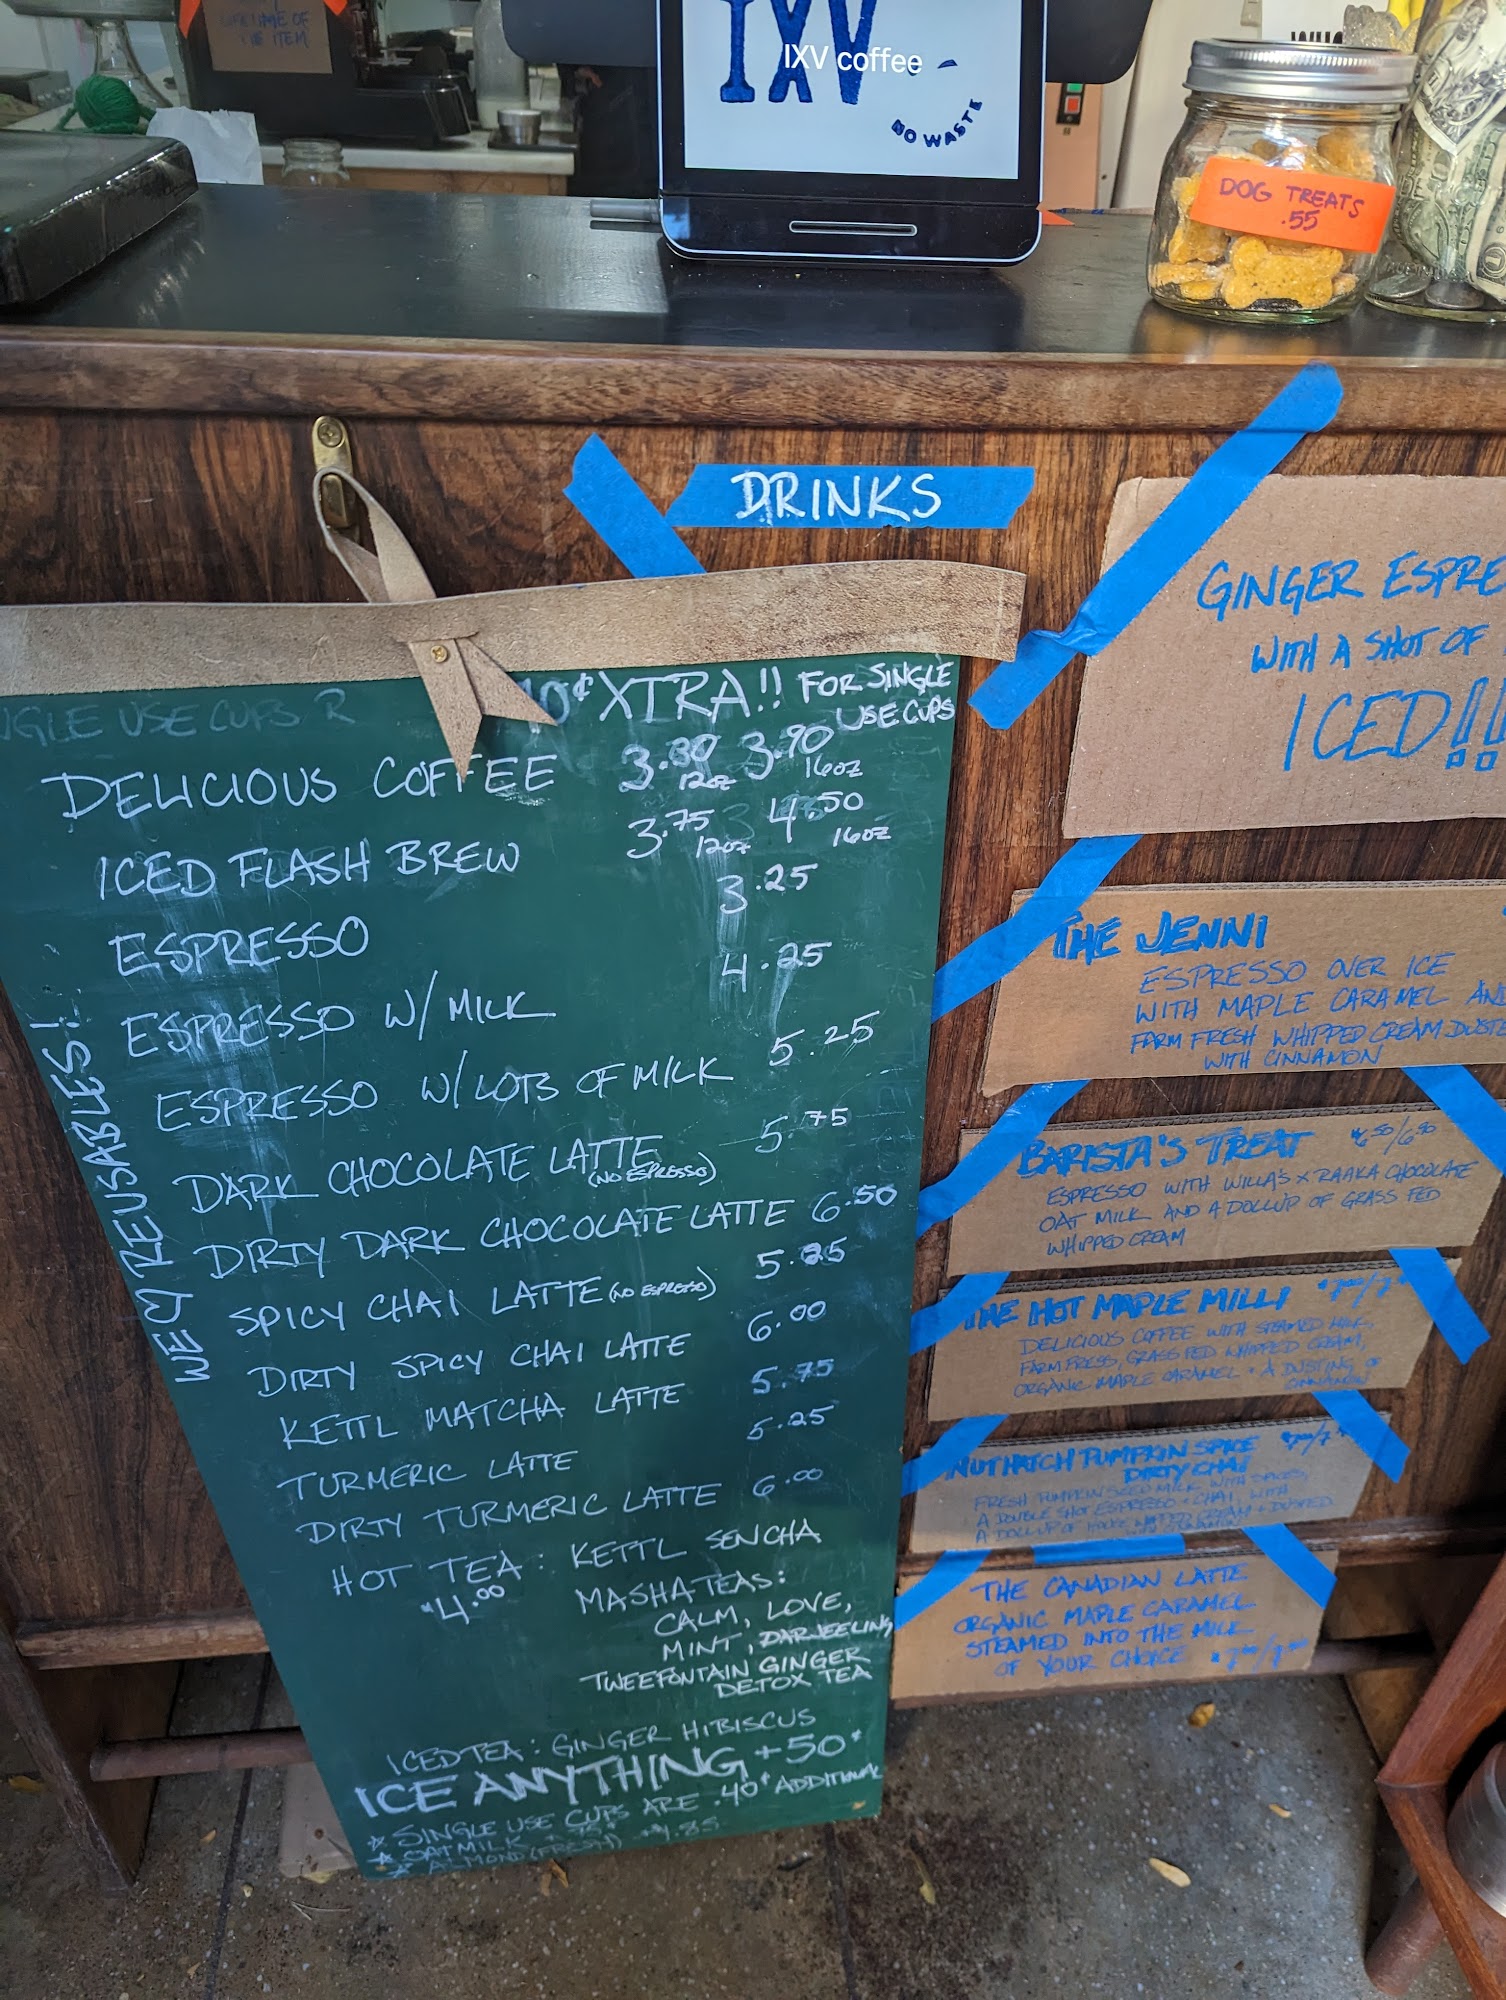 LIFETIME OF
THE ITEM
IXV
IXV coffee
NO WASTE
DOG TREATS
.55
DRINKS
NGLE USE CUPS R
40¢ XTRA!! FOR SINGLE
USE CUPS
DELICIOUS COFFEE 3.30 12oz 3.90 16oz
ICED FLASH BREW 3.75 12oz 4.50 16oz
ESPRESSO 3.25
ESPRESSO W/ MILK 4.25
ESPRESSO W/ LOTS OF MILK 5.25
DARK CHOCOLATE LATTE (NO ESPRESSO) 5.75
DIRTY DARK CHOCOLATE LATTE 6.50
SPICY CHAI LATTE (NO ESPRESSO) 5.25
DIRTY SPICY CHAI LATTE 6.00
KETTL MATCHA LATTE 5.75
TURMERIC LATTE 5.25
DIRTY TURMERIC LATTE 6.00
HOT TEA: KETTL SENCHA
$4.00 MASHA TEAS:
CALM, LOVE,
MINT, DARJEELING
TWEEFONTAIN GINGER
DETOX TEA
ICED TEA: GINGER HIBISCUS
ICE ANYTHING +50¢
☆ SINGLE USE CUPS ARE .40¢ ADDITIONAL
☆ OATMILK
☆ ALMOND (FRESH) +.85
WE ♡ REUSABLES!
GINGER ESPRE
WITH A SHOT OF
ICED!!
THE JENNI
ESPRESSO OVER ICE
WITH MAPLE CARAMEL AND
FARM FRESH WHIPPED CREAM DUSTE
WITH CINNAMON
BARISTA'S TREAT $6.50/6.90
ESPRESSO WITH WILLA'S X RAAKA CHOCOLATE
OAT MILK AND A DOLLUP OF GRASS FED
WHIPPED CREAM
THE HOT MAPLE MILLI
DELICIOUS COFFEE WITH STEAMED MILK,
FARM FRESS, GRASS FED WHIPPED CREAM,
ORGANIC MAPLE CARAMEL + A DUSTING OF
CINNAMON
NUTHATCH PUMPKIN SPICE
DIRTY CHAI
FRESH PUMPKIN SEED MILK WITH SPICES,
A DOUBLE SHOT ESPRESSO + CHAI WITH
A DOLLUP OF HOUSE WHIPPED CREAM + DUSTED
THE CANADIAN LATTE
ORGANIC MAPLE CARAMEL
STEAMED INTO THE MILK
OF YOUR CHOICE